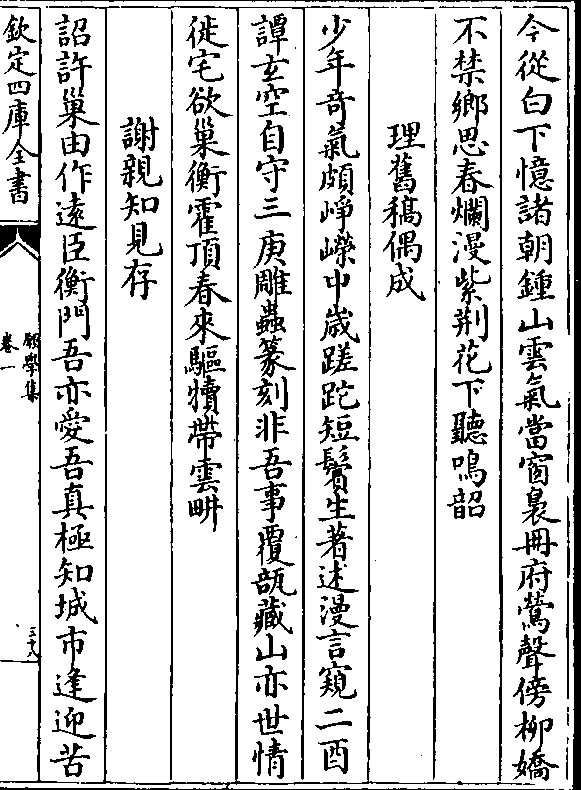 今從白下憶諸朝鍾山雲氣當窗裊冊府鶯聲傍柳嬌
不禁鄉思春爛漫紫荆花下聽鳴韶
理舊稿偶成
少年奇氣頗崢嶸中歲蹉跎短鬢生著述漫言窺二酉
譚玄空自守三庚雕蟲篆刻非吾事覆瓿藏山亦世情
徙宅欲巢衡霍頂春來驅犢帶雲畊
謝親知見存
詔許巢由作遠臣衡門吾亦愛吾真極知城市逢迎苦
欽定四庫全書
卷一
三十八